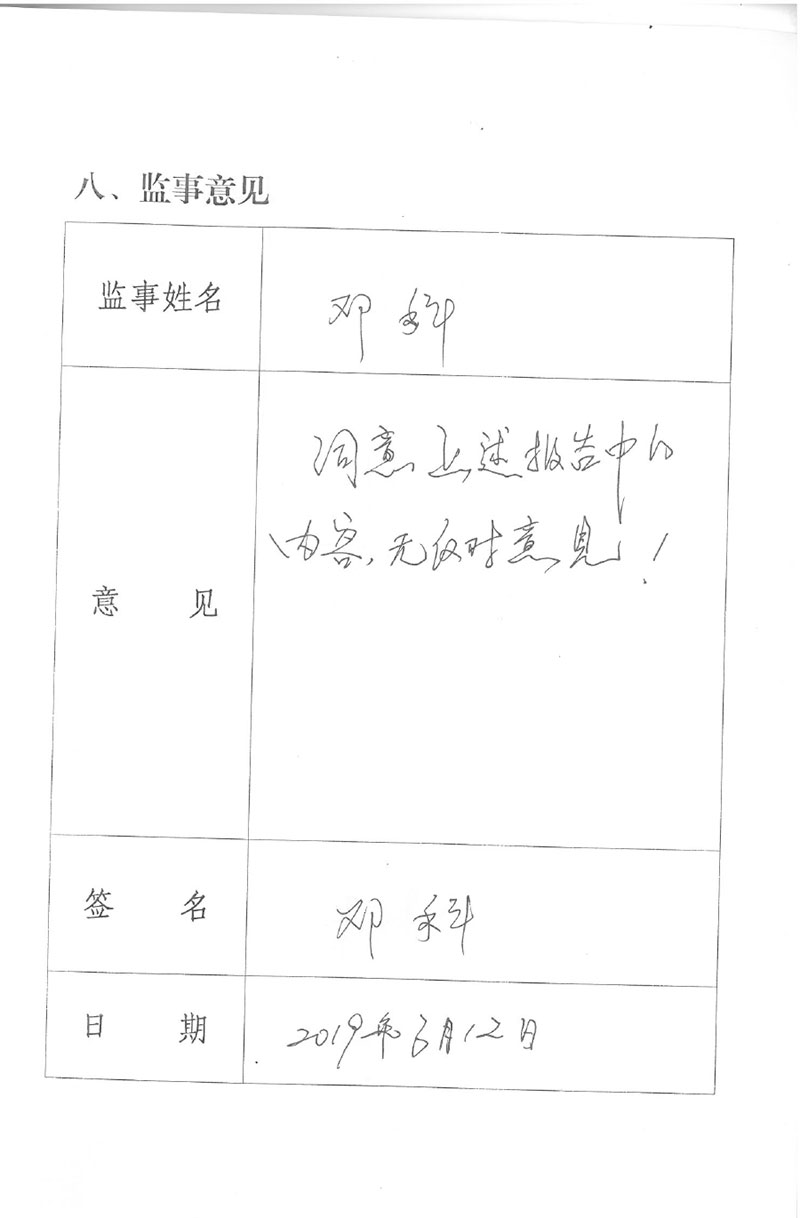 八、监事意见
监事姓名
邓科
意见
同意上述报告中的
内容,无反对意见!
签名
邓科
日期
2019年6月12日